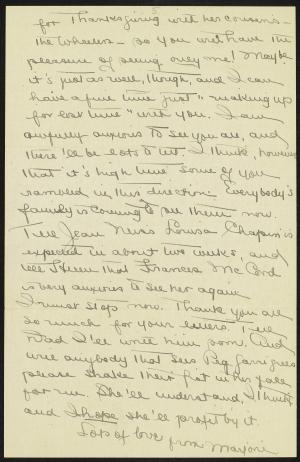 5
for Thanksgiving with her cousins –
the Wheelers – so you will have the
pleasure of seeing only me! Maybe
it's just as well, though, and I can
have a fine time just "making up
for lost time" with you. I am
awfully anxious to see you all, and
there'll be lots to tell. I think, however
that it's high time some of you
rambled in this direction. Everybody's
family is coming to see them now.
Tell Jean Miss Louisa Chapin is
expected in about two weeks, and
tell Helen that Frances McCord
is very anxious to see her again
I must stop now. Thank you all
so much for your letters. Tell
Dad I'll write him soon. And
will anybody that sees Peg Garrigues
please shake their fist in her face
for me. She'll understand, I think
and I hope she'll profit by it.
Lots of love from Marjorie